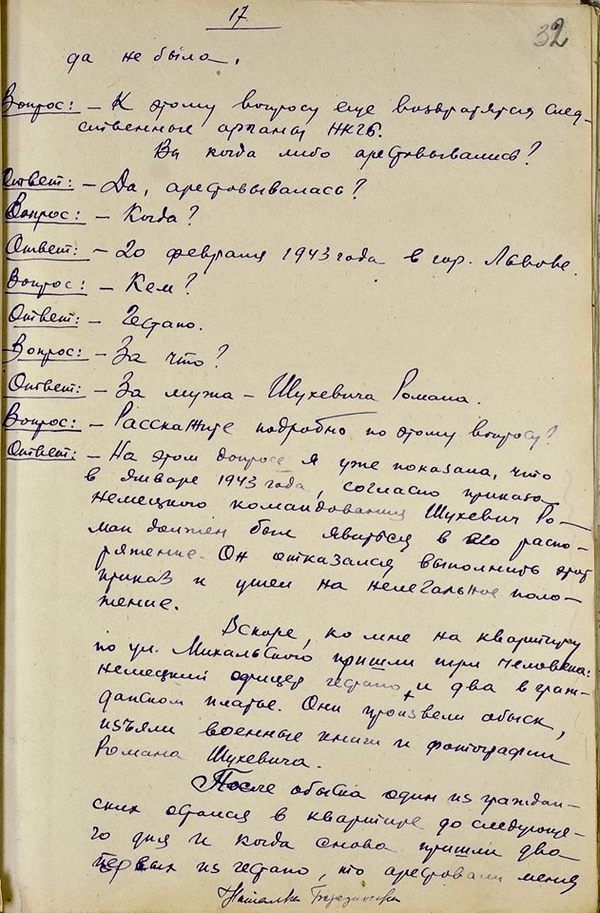 17
32
да не была.
Вопрос: – К этому вопросу еще возвратятся след-
ственные органы НКГБ.
Вы когда либо арестовывались?
Ответ: – Да, арестовывалась?
Вопрос: – Когда?
Ответ: – 20 февраля 1943 года в гор. Львове.
Вопрос: – Кем?
Ответ: – Гестапо.
Вопрос: – За что?
Ответ: – За мужа – Шухевича Романа.
Вопрос: – Расскажите подробно по этому вопросу?
Ответ: – На этом допросе я уже показала, что
в январе 1943 года, согласно приказа
немецкого командования Шухевич Ро-
ман должен был явиться в его распо-
ряжение. Он отказался выполнить этот
приказ и ушел на нелегальное поло-
жение.
Вскоре, ко мне на квартиру
по ул. Михальского пришли три человека:
немецкий офицер гестапо и два в граж-
данском платье. Они произвели обыск,
изъяли военные книги и фотографии
Романа Шухевича.
После обыска один из граждан-
ских остался в квартире до следующе-
го дня и когда снова пришли два
первых из гестапо, то арестовали меня
Наталья